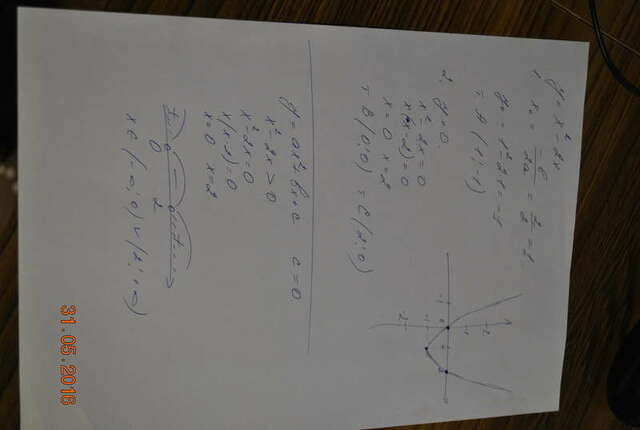 y = x² - 2x
1. x₀ = -b/2a = 2/2 = 1
y₀ = 1² - 2·1 = -1
т A (1; -1)
2. y = 0.
x² - 2x = 0
x(x-2) = 0
x = 0 x = 2
т B (0; 0) т C (2; 0)
2
1
-1 0 1 2
-1
-2
y = ax² + bx + c c = 0.
x² - 2x > 0
x² - 2x = 0
x(x-2) = 0
x = 0 x = 2
+ - +
0 2
x ∈ (-∞; 0) ∪ (2; +∞)
31.05.2016